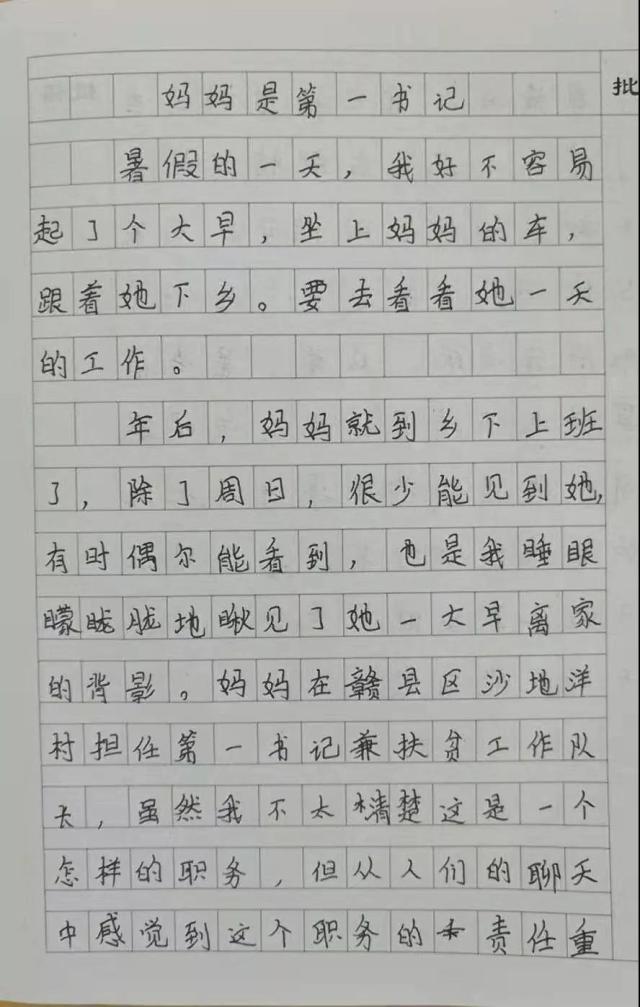 批
妈妈是第一书记
暑假的一天，我好不容易
起了个大早，坐上妈妈的车，
跟着她下乡。要去看看她一天
的工作。
年后，妈妈就到乡下上班
了，除了周日，很少能见到她，
有时偶尔能看到，也是我睡眼
曚眬胧地瞅见了她一大早离家
的背影。妈妈在赣县区沙地洋
村担任第一书记兼扶贫工作队
长，虽然我不太清楚这是一个
怎样的职务，但从人们的聊天
中感觉到这个职务的责任重